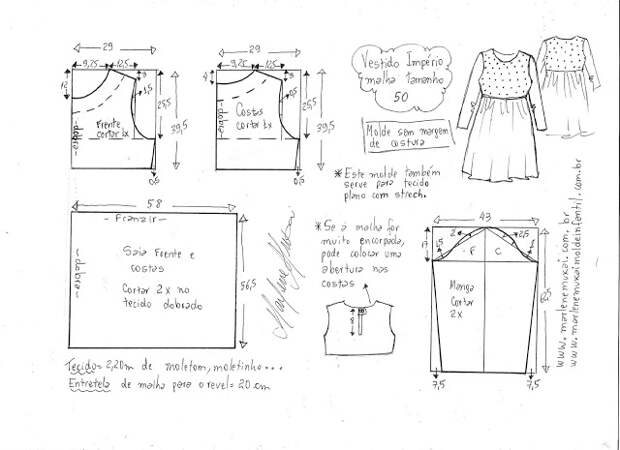 29
9,25 12,5
12
3
1,5
25,5
39,5
Frente
cortar 1x
-dobra-
0,5
29
9,25 12,5
4
25,5
39,5
Costas
cortar 1x
-dobra-
0,5
Vestido Império
malha tamanho
50
Molde sem margem
de costura
*Este molde também
serve para tecido
plano com strech.
58
- Franzir -
-dobra-
Saia Frente e
costas
Cortar 2x no
tecido dobrado
56,5
Marlene Mukai
*Se a malha for
muito encorpada,
pode colocar uma
abertura nas
costas
43
2
2,5
1,5
F C
Manga
Cortar
2x
7,5 7,5
www.marlenemukai.com.br
www.marlenemukaimoldeinfantil.com.br
Tecidos= 2,20m de moletom, moletinho...
Entretela de malha para o revel= 20 cm